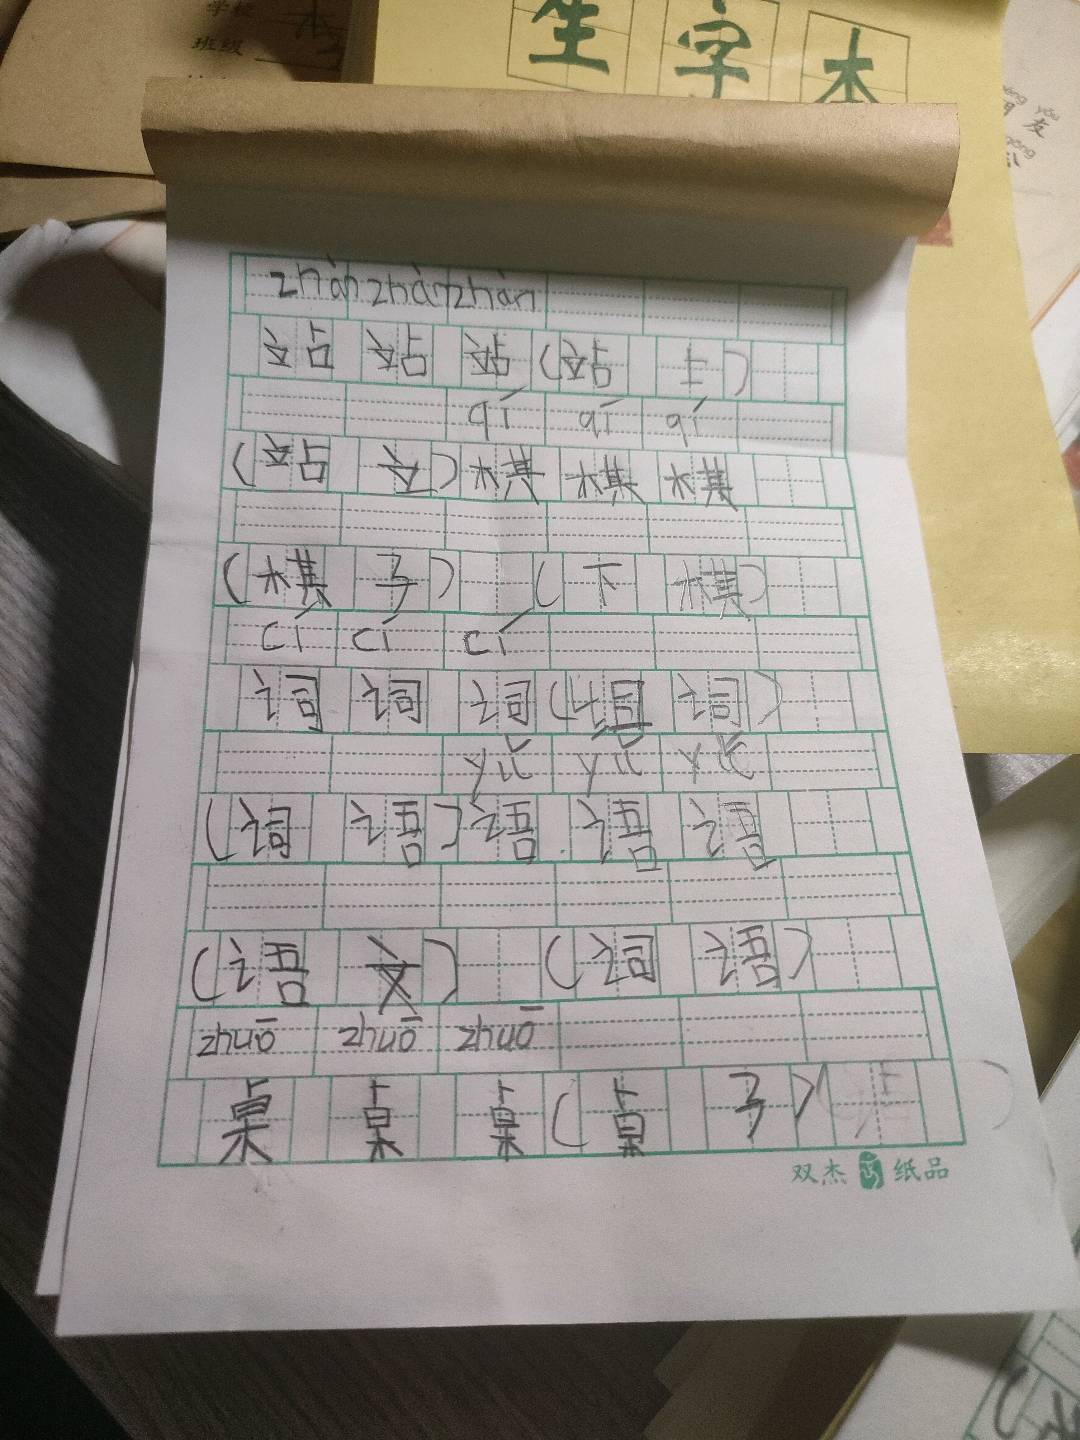 学校
班级
生字本
yǒu
友
zhàn zhàn zhàn
站 站 站 (站 上)
qí qí qí
(站 立) 棋 棋 棋
(棋 子) (下 棋)
cí cí cí
词 词 词 (组 词)
yǔ yǔ yǔ
(词 语) 语 语 语
(语 文) (词 语)
zhuō zhuō zhuō
桌 桌 桌 (桌 子)
双杰 纸品